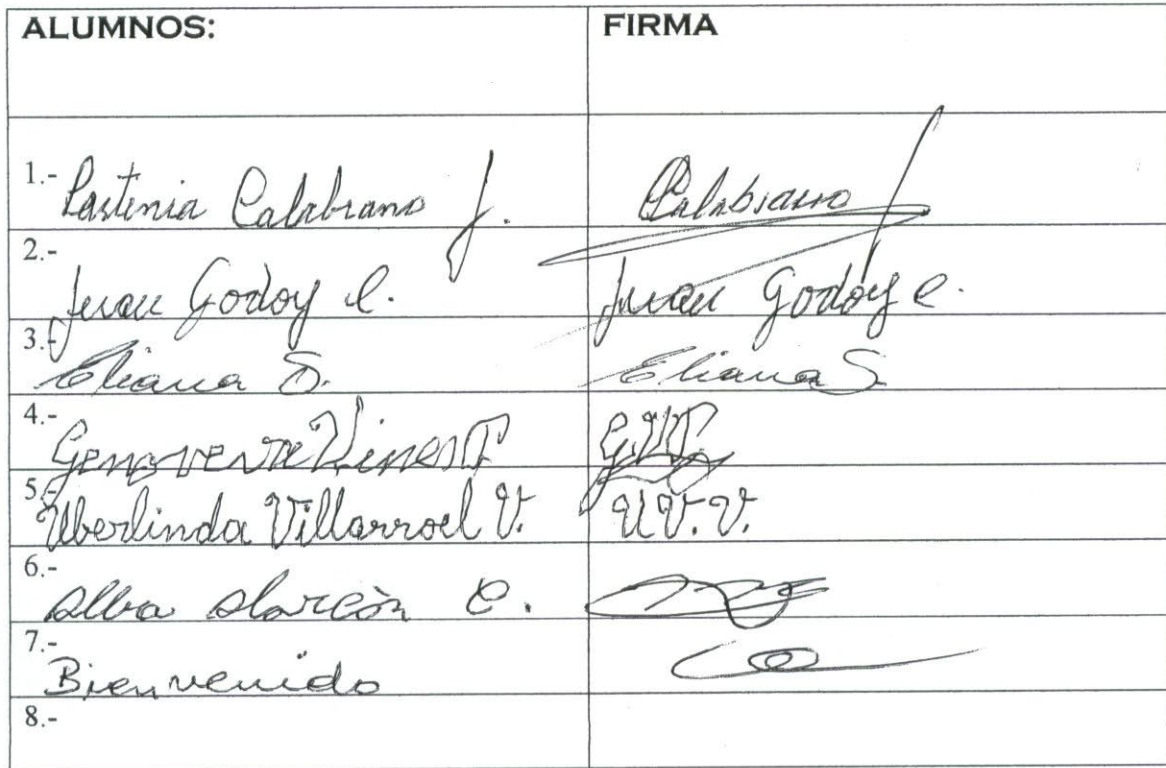 ALUMNOS: FIRMA
1.- Pastenia Calabrano J. Calabrano
2.- Juan Godoy C. Juan Godoy C.
3.- Eliana S. Eliana S
4.- Genoveva
5.- Uberlinda Villarroel V. U.V.V.
6.- Alba Alarcón C.
7.- Bienvenido
8.-